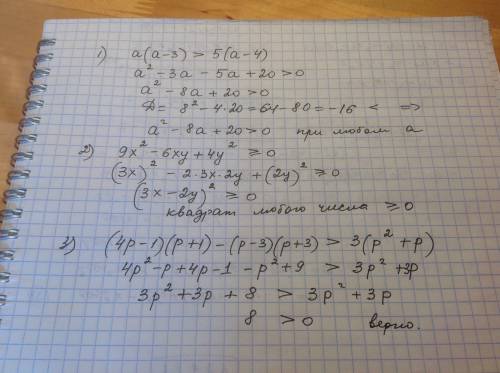 1) a(a-3) > 5(a-4)
a² - 3a - 5a + 20 > 0
a² - 8a + 20 > 0
D = 8² - 4·20 = 64 - 80 = -16 < =>
a² - 8a + 20 > 0 при любом a
2) 9x² - 6xy + 4y² ≥ 0
(3x)² - 2·3x·2y + (2y)² ≥ 0
(3x - 2y)² ≥ 0
квадрат любого числа ≥ 0
3) (4p-1)(p+1) - (p-3)(p+3) > 3(p² + p)
4p² - p + 4p - 1 - p² + 9 > 3p² + 3p
3p² + 3p + 8 > 3p² + 3p
8 > 0 верно.